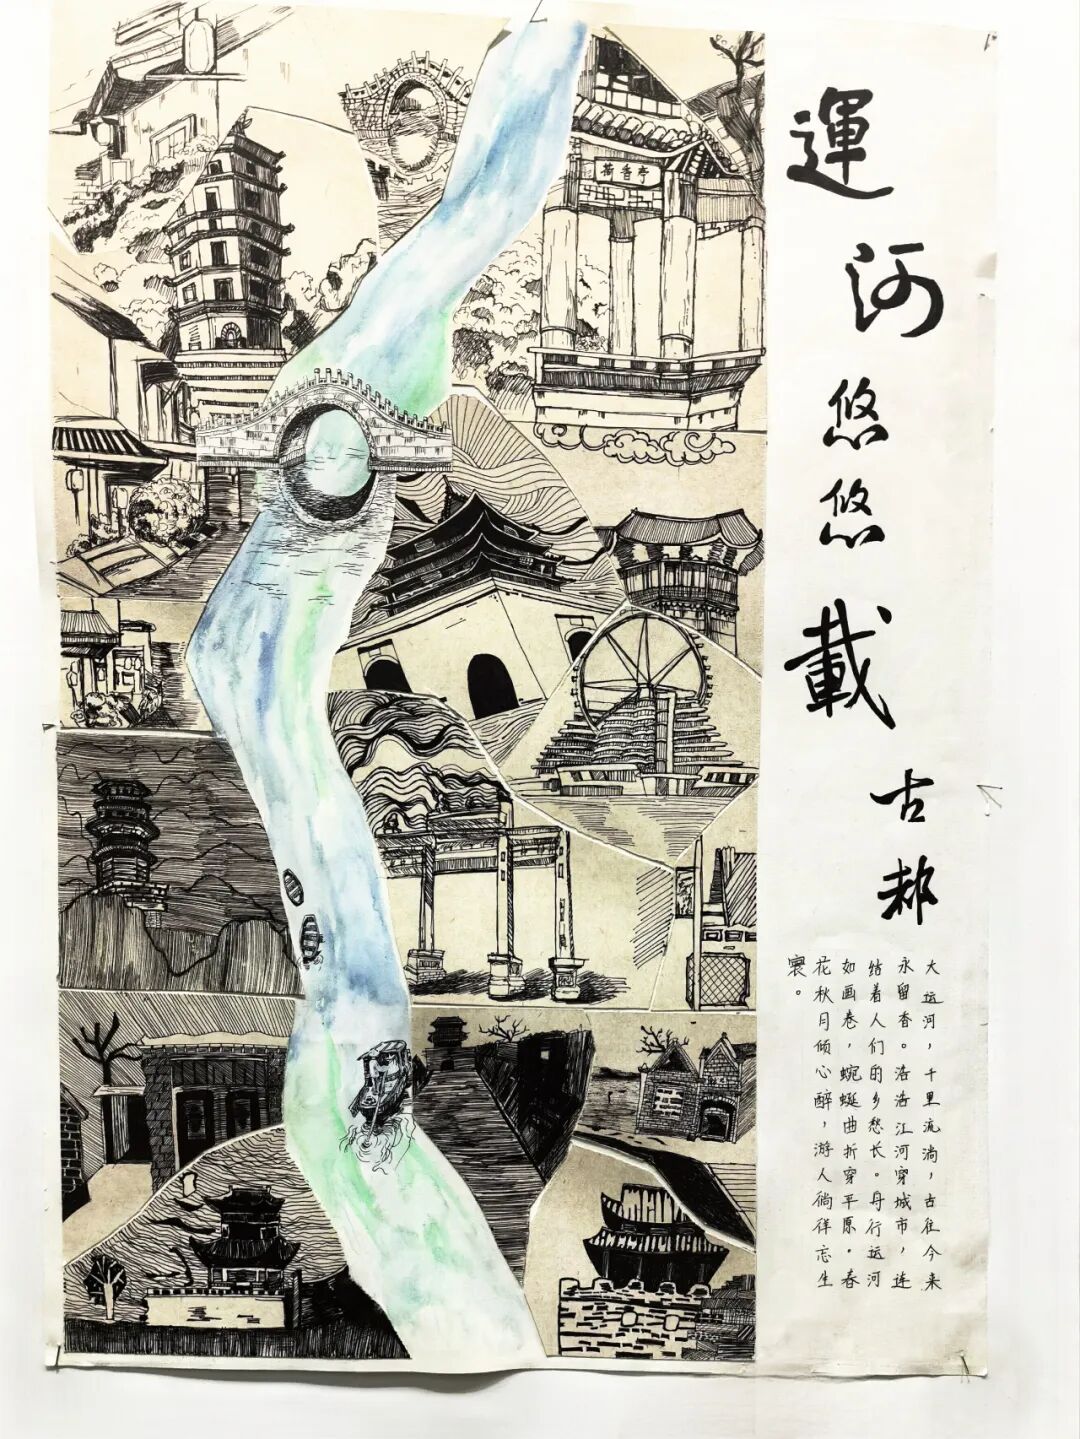 運河悠悠載古都
大运河，千里流淌，古往今来
永留香。浩浩江河穿城市，连
结着人们的乡愁长。舟行运河
如画卷，蜿蜒曲折穿平原。春
花秋月倾心醉，游人徜徉忘生
寰。
荷香亭